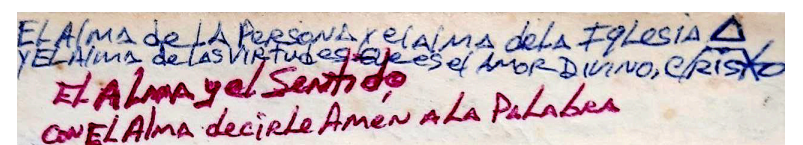 EL Alma de LA Persona y el alma de la Iglesia △
y EL Alma de las virtudes que es el Amor Divino, Cristo
El Alma y el Sentido
con El Alma decirle Amén a la Palabra